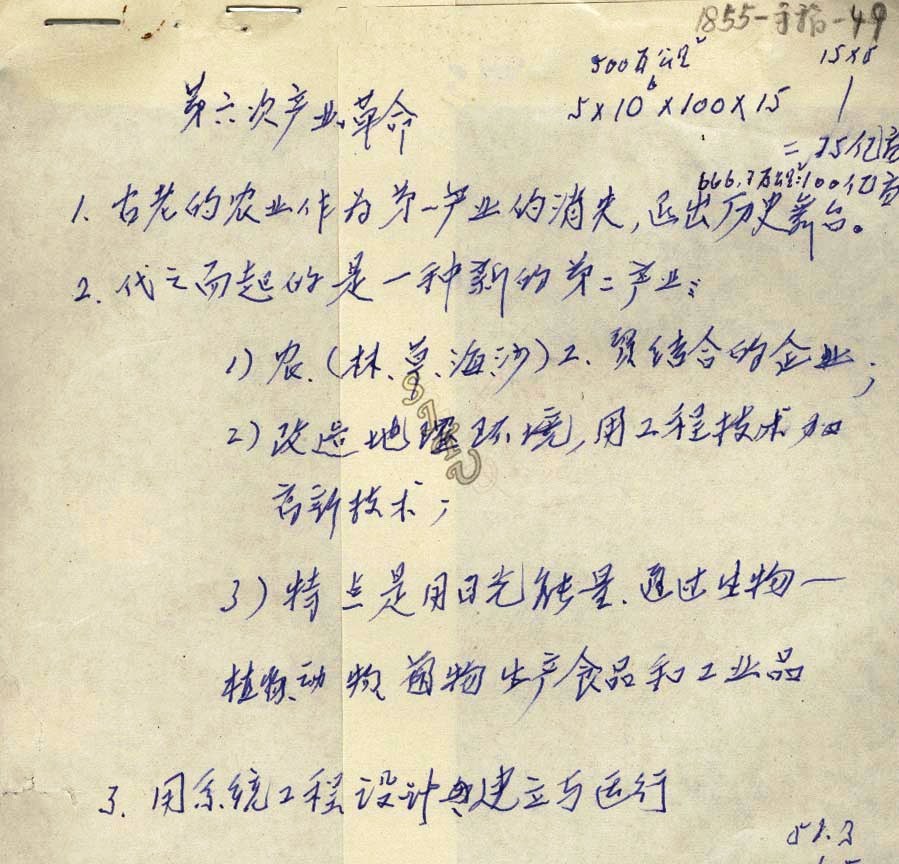 1855-手稿-49
500万公里² 15×5
第六次产业革命
5×10⁶×100×15
=75亿亩
666.7万公里²:100亿亩
1. 古老的农业作为第一产业的消失,退出历史舞台。
2. 代之而起的是一种新的第二产业:
1) 农、(林、草、海、沙)工、贸结合的企业;
2) 改造地理环境,用工程技术加
高新技术;
3) 特点是用日光能量、通过生物一
植物、动物、菌物生产食品和工业品
3. 用系统工程设计与建立与运行
51.3